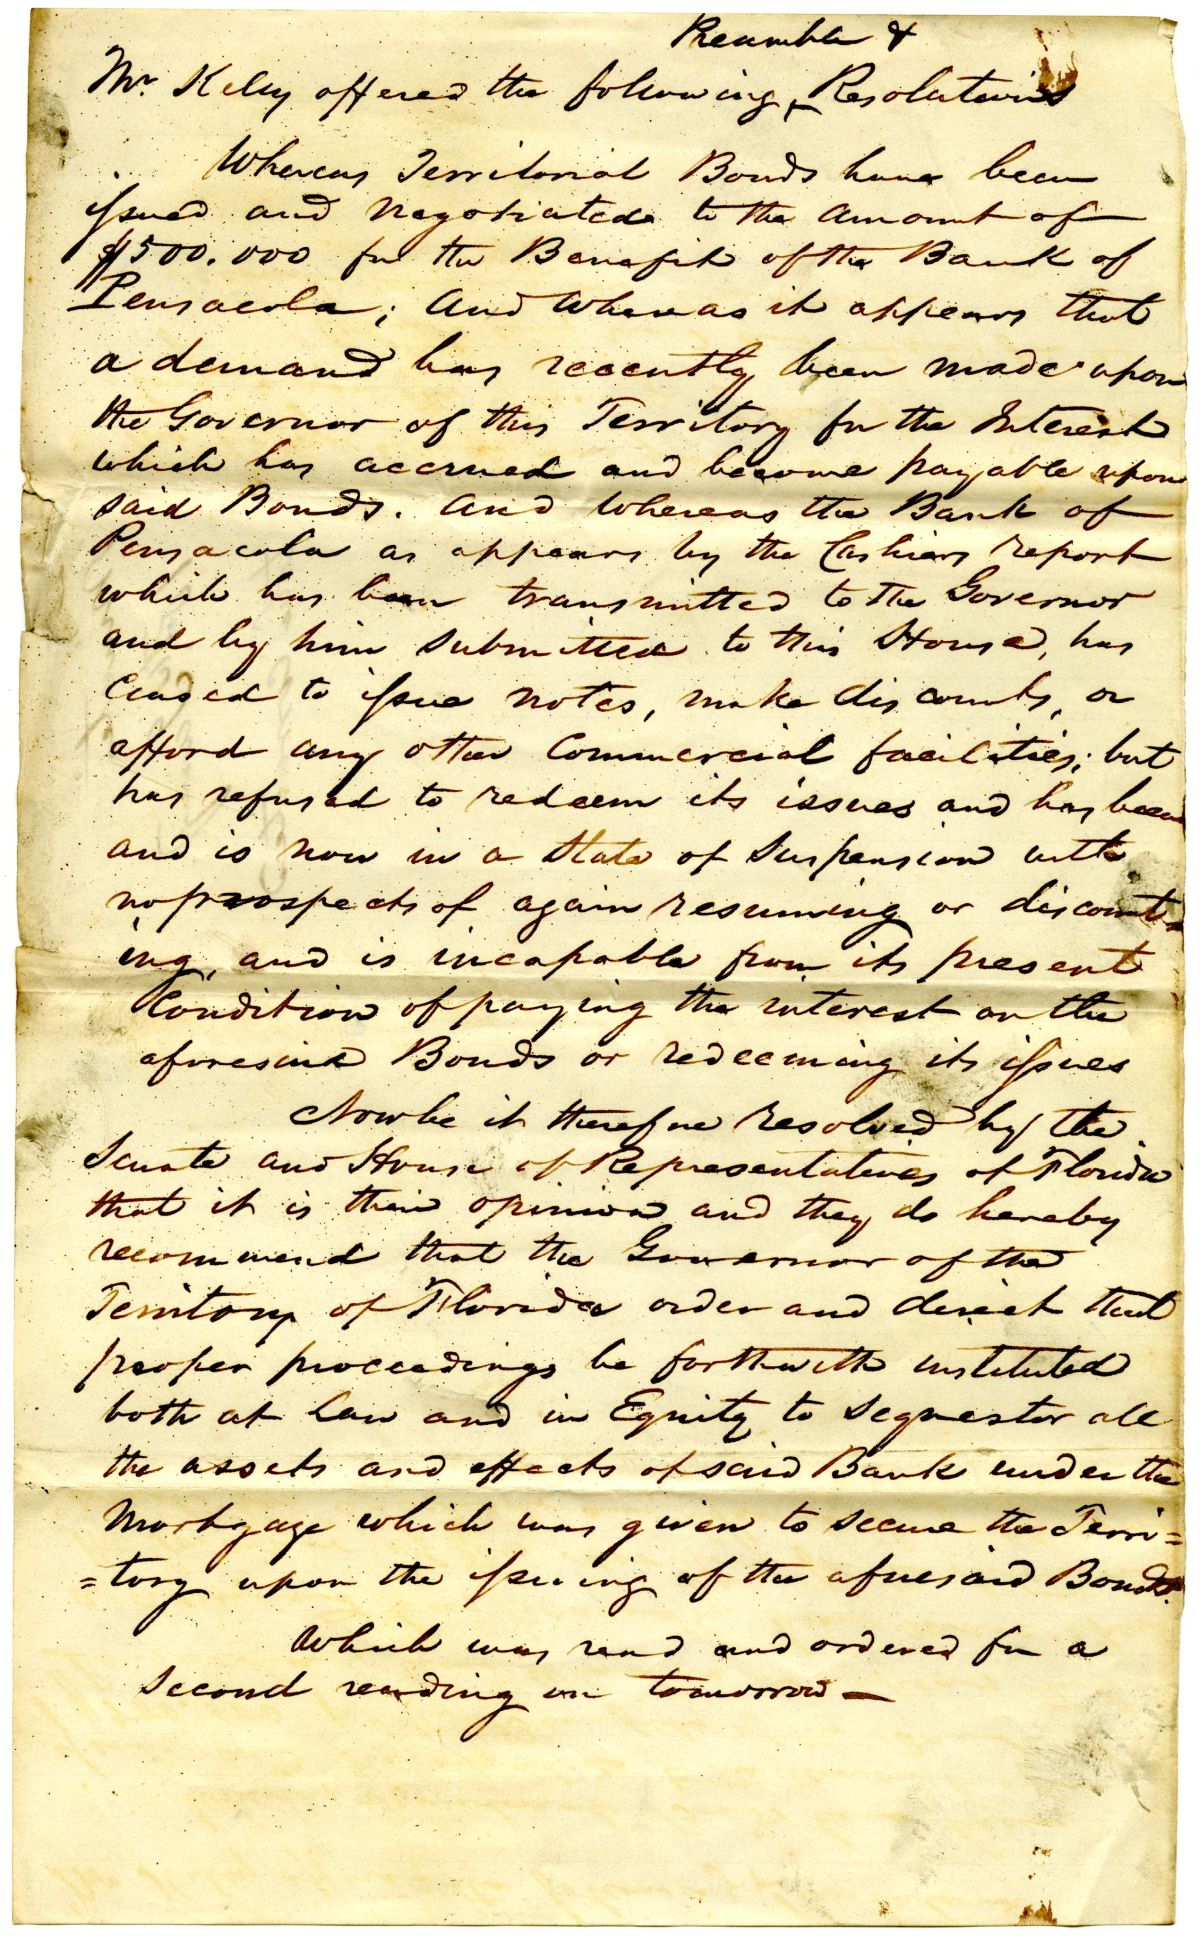 Preamble &
Mr. Kelly offered the following Resolutions
Whereas Territorial Bonds have been
issued and negotiated to the amount of
$500.000 for the Benefit of the Bank of
Pensacola; And Whereas it appears that
a demand has recently been made upon
the Governor of this Territory for the Interest
which has accrued and become payable upon
said Bonds. And Whereas the Bank of
Pensacola as appears by the Cashiers report
which has been transmitted to the Governor
and by him submitted to this House, has
Ceased to issue notes, make discounts, or
afford any other Commercial facilities; but
has refused to redeem its issues and has been
and is now in a State of Suspension with
no prospects of again resuming or discount-
ing, and is incapable from its present
Condition of paying the interest on the
aforesaid Bonds or redeeming its issues
Now be it therefore resolved by the
Senate and House of Representatives of Florida
that it is their opinion and they do hereby
recommend that the Governor of the
Territory of Florida order and direct that
proper proceedings be forthwith instituted
both at Law and in Equity to Sequester all
the assets and effects of said Bank under the
Mortgage which was given to secure the Terri=
=tory upon the issuing of the aforesaid Bonds.
Which was read and ordered for a
Second reading on tomorrow—